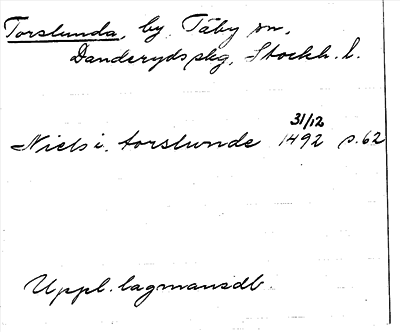 Torslunda, by Täby sn,
Danderyds skg, Stockh. l.
31/12
Niels i. torslunde 1492 s. 62
Uppl. lagmansdb.